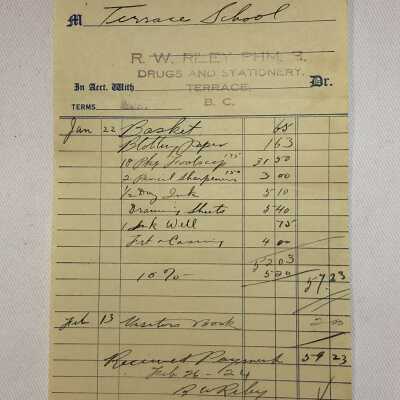 M Terrace School
R. W. RILEY PHM. B.
DRUGS AND STATIONERY.
In Acct. With TERRACE, Dr.
TERMS B. C.
Jan 22 Basket 65
Blotting Paper 1 63
18 Pkg Foolscap 1 75 31 50
2 Pencil Sharpeners 1 50 3 00
1/2 Doz Ink 5 10
Drawing Sheets 5 40
1 Ink Well 75
4 00
52 03
10 % 5 20 57 23
Feb 13 Visitors Book 2 00
Received Payment 59 23
Feb 26 - 24
R W Riley